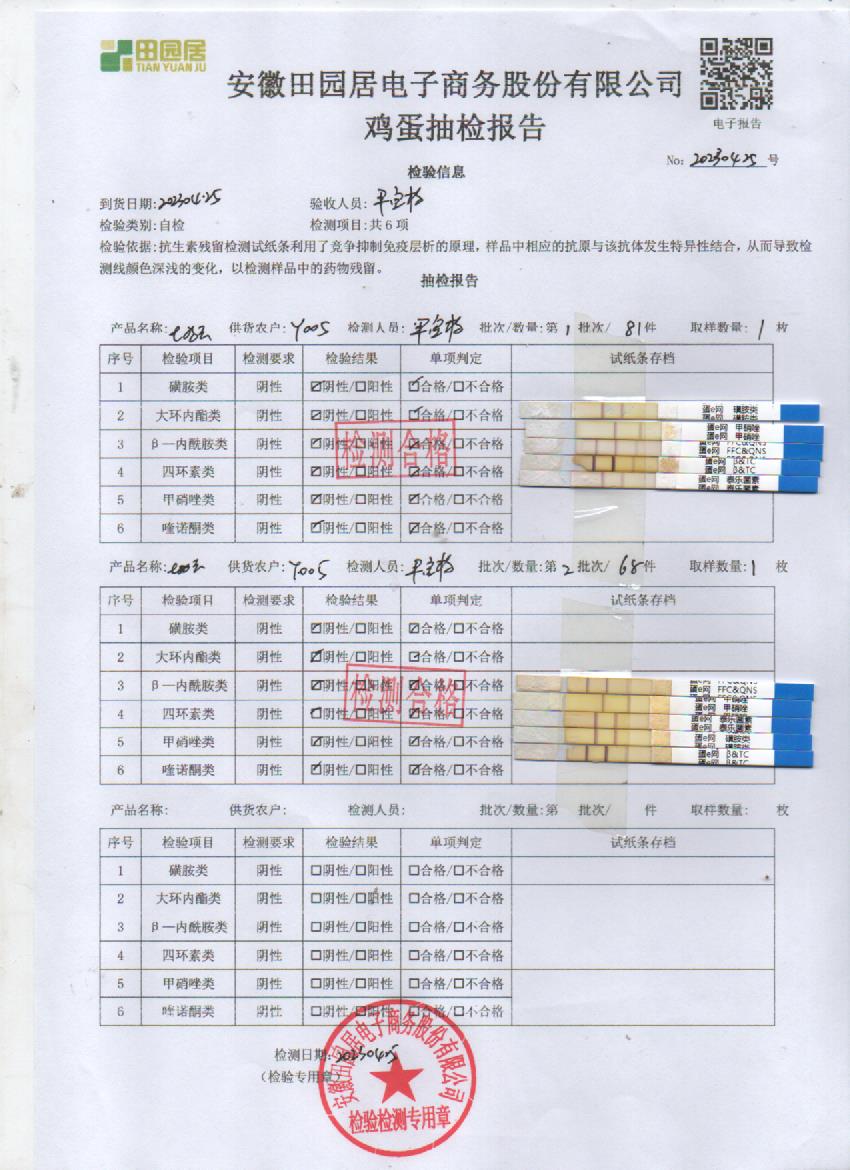 田园居
TIAN YUAN JU
安徽田园居电子商务股份有限公司
鸡蛋抽检报告
电子报告
No: 20230425 号
检验信息
到货日期:20230425 验收人员:
检验类别:自检 检测项目:共6项
检验依据:抗生素残留检测试纸条利用了竞争抑制免疫层析的原理,样品中相应的抗原与该抗体发生特异性结合,从而导致检
测线颜色深浅的变化,以检测样品中的药物残留。
抽检报告
产品名称: 供货农户:Y005 检测人员: 批次/数量:第1批次/81件 取样数量:1枚
序号 检验项目 检测要求 检验结果 单项判定 试纸条存档
1 磺胺类 阴性 ☑阴性/☐阳性 ☑合格/☐不合格
2 大环内酯类 阴性 ☑阴性/☐阳性 ☑合格/☐不合格
3 β—内酰胺类 阴性 ☑阴性/☐阳性 ☑合格/☐不合格
4 四环素类 阴性 ☑阴性/☐阳性 ☑合格/☐不合格
5 甲硝唑类 阴性 ☑阴性/☐阳性 ☑合格/☐不合格
6 喹诺酮类 阴性 ☑阴性/☐阳性 ☑合格/☐不合格
检测合格
蛋e网 磺胺类
蛋e网 磺胺类
蛋e网 甲硝唑
蛋e网 甲硝唑
蛋e网 FFC&QNS
蛋e网 β&TC
蛋e网 β&TC
蛋e网 泰乐菌素
蛋e网 泰乐菌素
产品名称: 供货农户:Y005 检测人员: 批次/数量:第2批次/68件 取样数量:1枚
序号 检验项目 检测要求 检验结果 单项判定 试纸条存档
1 磺胺类 阴性 ☑阴性/☐阳性 ☑合格/☐不合格
2 大环内酯类 阴性 ☑阴性/☐阳性 ☑合格/☐不合格
3 β—内酰胺类 阴性 ☑阴性/☐阳性 ☑合格/☐不合格
4 四环素类 阴性 ☑阴性/☐阳性 ☑合格/☐不合格
5 甲硝唑类 阴性 ☑阴性/☐阳性 ☑合格/☐不合格
6 喹诺酮类 阴性 ☑阴性/☐阳性 ☑合格/☐不合格
检测合格
蛋e网 FFC&QNS
蛋e网 FFC&QNS
蛋e网 甲硝唑
蛋e网 甲硝唑
蛋e网 泰乐菌素
蛋e网 泰乐菌素
蛋e网 磺胺类
蛋e网 磺胺类
蛋e网 β&TC
蛋e网 β&TC
产品名称: 供货农户: 检测人员: 批次/数量:第 批次/ 件 取样数量: 枚
序号 检验项目 检测要求 检验结果 单项判定 试纸条存档
1 磺胺类 阴性 ☐阴性/☐阳性 ☐合格/☐不合格
2 大环内酯类 阴性 ☐阴性/☐阳性 ☐合格/☐不合格
3 β—内酰胺类 阴性 ☐阴性/☐阳性 ☐合格/☐不合格
4 四环素类 阴性 ☐阴性/☐阳性 ☐合格/☐不合格
5 甲硝唑类 阴性 ☐阴性/☐阳性 ☐合格/☐不合格
6 喹诺酮类 阴性 ☐阴性/☐阳性 ☐合格/☐不合格
检测日期:20230425
(检验专用章)
安徽田园居电子商务股份有限公司
检验检测专用章